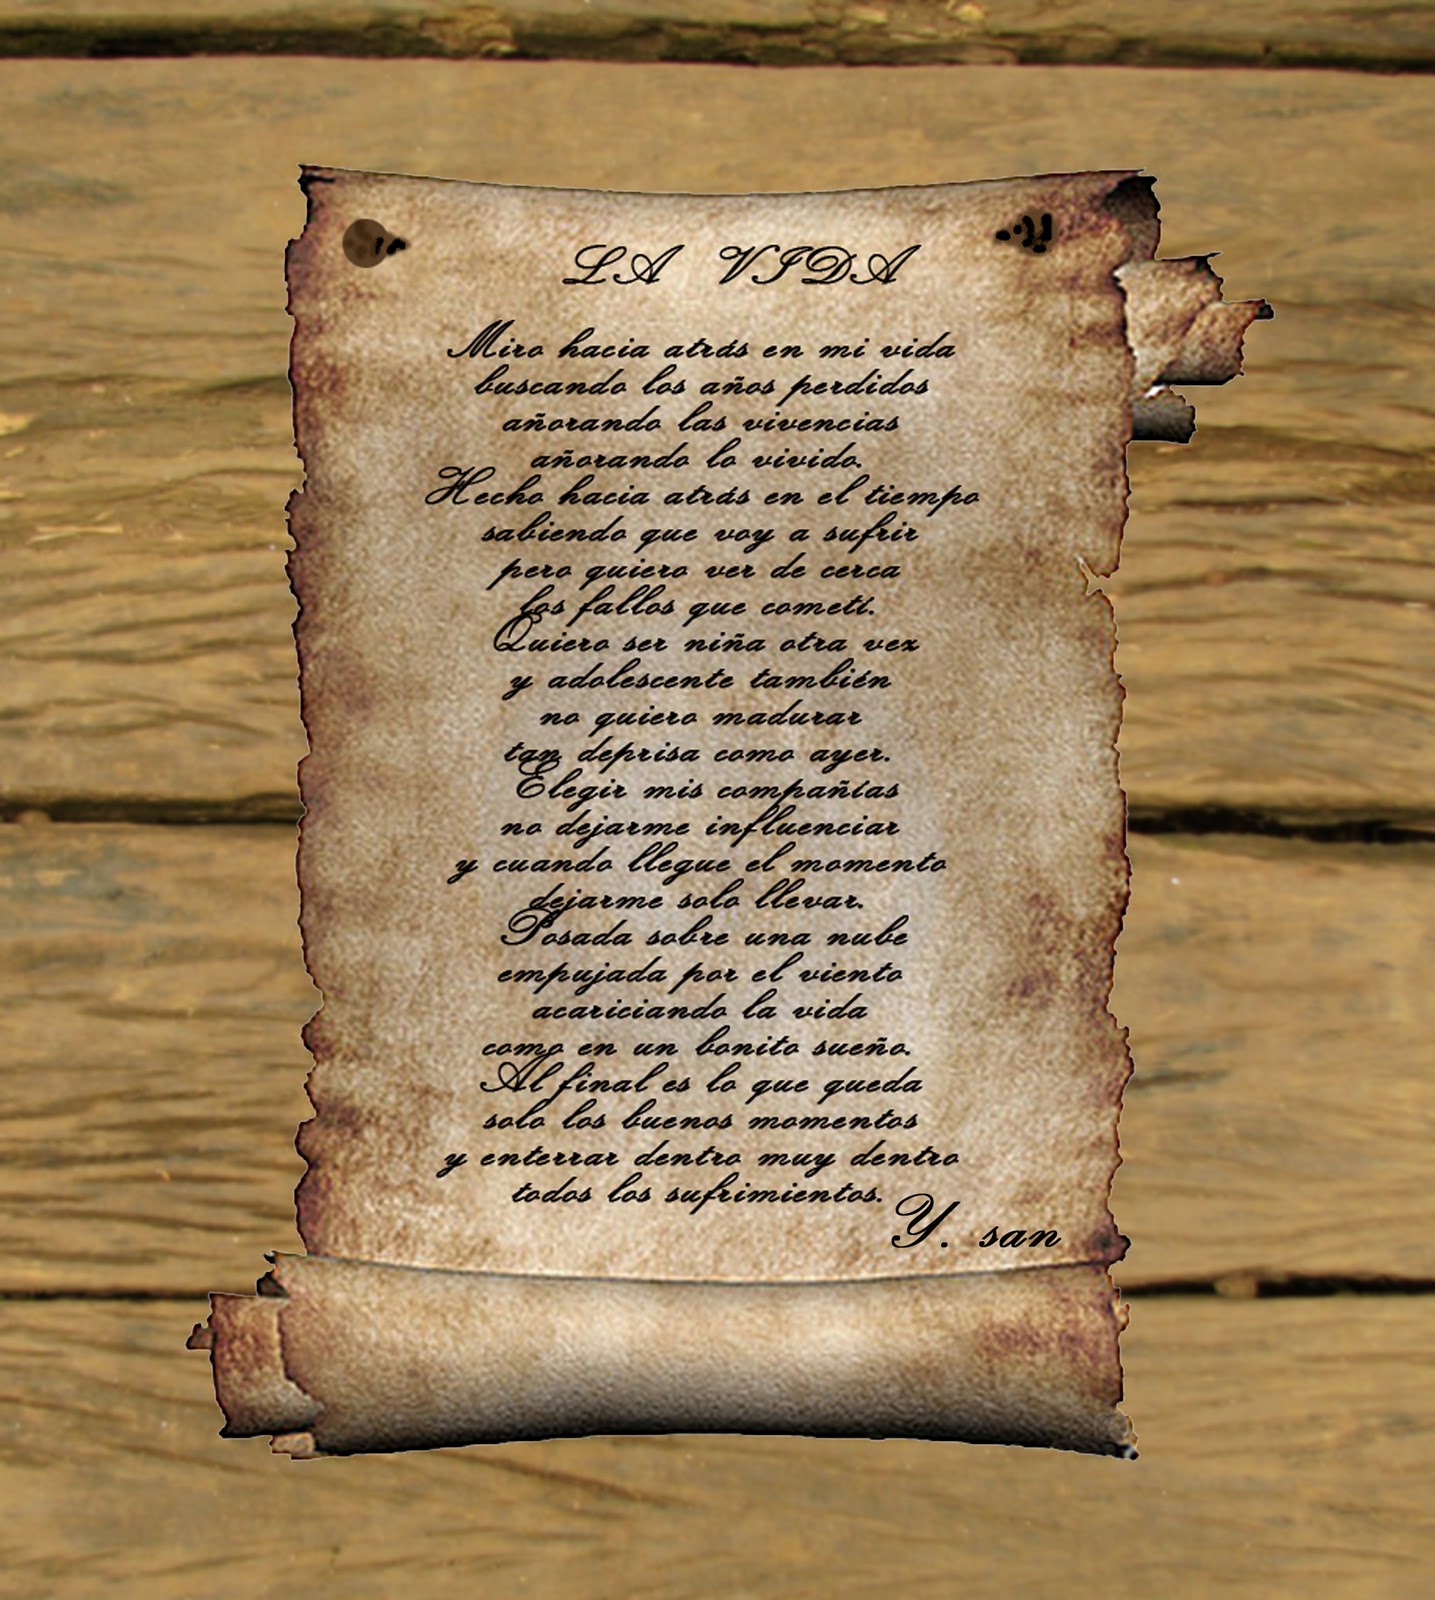 LA VIDA
Miro hacia atrás en mi vida
buscando los años perdidos
añorando las vivencias
añorando lo vivido.
Hecho hacia atrás en el tiempo
sabiendo que voy a sufrir
pero quiero ver de cerca
los fallos que cometí.
Quiero ser niña otra vez
y adolescente también
no quiero madurar
tan deprisa como ayer.
Elegir mis compañías
no dejarme influenciar
y cuando llegue el momento
dejarme solo llevar.
Posada sobre una nube
empujada por el viento
acariciando la vida
como en un bonito sueño.
Al final es lo que queda
solo los buenos momentos
y enterrar dentro muy dentro
todos los sufrimientos.
Y. san